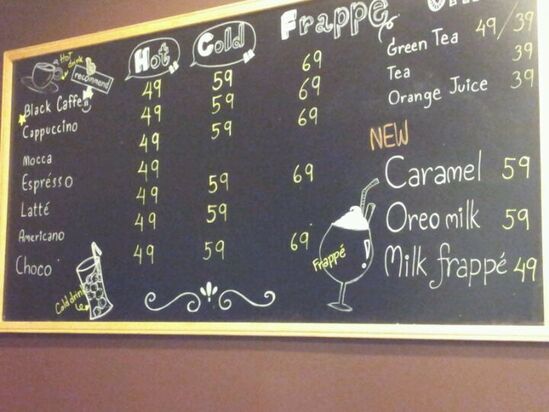 Hot Cold Frappé
Hot drink
recommend
Black Caffe 49 59 69
Cappuccino 49 59 69
Mocca 49 59 69
Espresso 49
Latté 49 59 69
Americano 49 59
Choco 49 59 69
Cold drink
Frappé
Green Tea 49/39
Tea 39
Orange Juice 39
NEW
Caramel 59
Oreo milk 59
Milk frappé 49